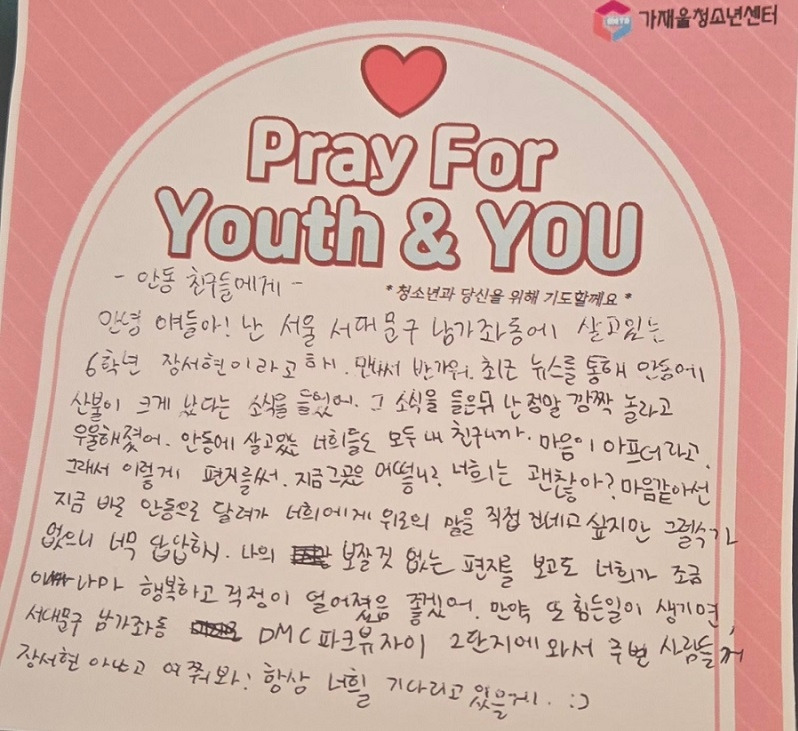 가재울청소년센터
Pray For
Youth & YOU
- 안동 친구들에게 -
*청소년과 당신을 위해 기도할께요*
안녕 얘들아! 난 서울 서대문구 남가좌동에 살고있는
6학년 장서현이라고 해. 만나서 반가워. 최근 뉴스를 통해 안동에
산불이 크게 났다는 소식을 들었어. 그 소식을 들은뒤 난 정말 깜짝 놀라고
우울해졌어. 안동에 살고있는 너희들도 모두 내 친구니까. 마음이 아프더라고.
그래서 이렇게 편지를써. 지금그곳은 어떻니? 너희는 괜찮아? 마음같아선
지금 바로 안동으로 달려가 너희에게 위로의 말을 직접 건네고 싶지만 그럴수가
없으니 너무 답답하다. 나의 보잘것 없는 편지를 보고도 너희가 조금
이나마 행복하고 걱정이 덜어졌음 좋겠어. 만약 또 힘든일이 생기면,
서대문구 남가좌동 DMC파크뷰자이 2단지에 와서 주변 사람들께
장서현 아냐고 여쭤봐! 항상 너흴 기다리고 있을게. :)